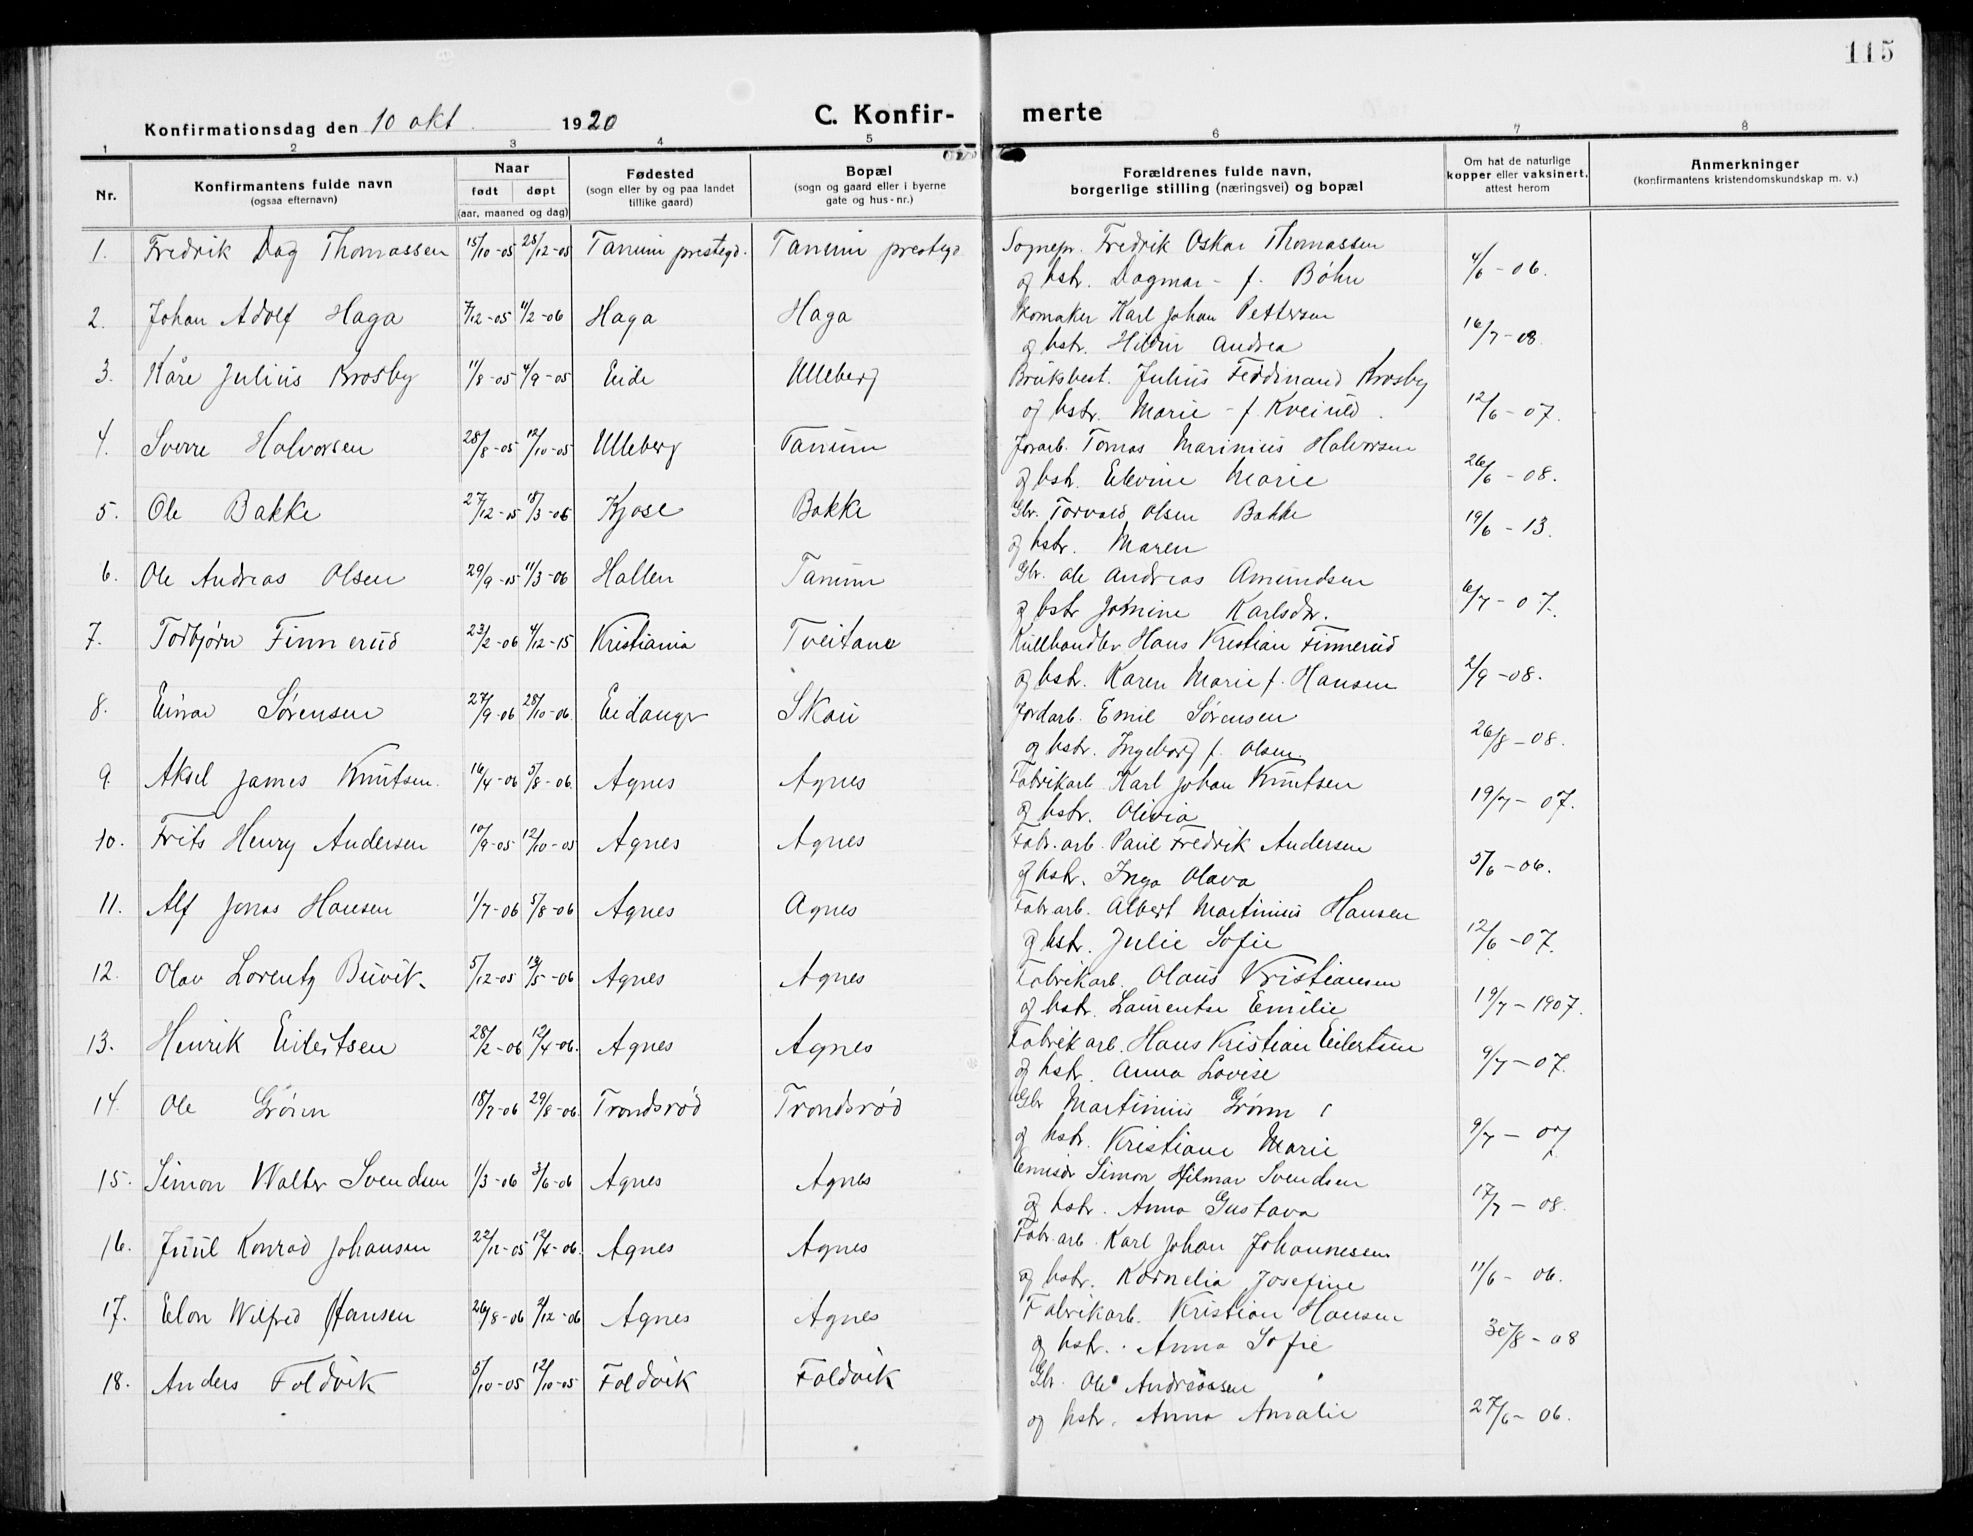 115
Konfirmationsdag den 10 okt 1920 C. Konfirmerte
1 2 3 4 5 6 7 8
Nr. Konfirmantens fulde navn (ogsaa efternavn) Naar født døpt (aar, maaned og dag) Fødested (sogn eller by og paa landet tillike gaard) Bopæl (sogn og gaard eller i byerne gate og hus-nr.) Forældrenes fulde navn, borgerlige stilling (næringsvei) og bopæl Om hat de naturlige kopper eller vaksinert, attest herom Anmerkninger (konfirmantens kristendomskundskap m. v.)
1. Fredrik Dag Thomassen 15/10-05 28/12-05 Tanum prestegd. Tanum prestegd Sognepr. Fredrik Oskar Thomassen
og hstr. Dagmar - f. Bøhn 4/6-06.
2. Johan Adolf Haga 7/12-05 4/2-06 Haga Haga Skomaker Karl Johan Pettersen
og hstr. Andrea 16/7-08.
3. Kåre Julius Krosby 11/8-05 4/9-05 Eide Ulleberg Bruksbest. Julius Ferdinand Krosby
og hstr. Marie - f. Kveiuld. 12/6-07.
4. Sverre Halvorsen 28/8-05 12/10-05 Ulleberg Tanum Jorarb. Tomas Marinius Halvorsen
og hstr. Elevine Marie 26/6-08.
5. Ole Bakke 27/12-05 18/3-06 Kjose Bakke Gbr. Torvald Olsen Bakke
og hstr. Maren 19/6-13.
6. Ole Andreas Olsen 29/9-05 11/3-06 Hallen Tanum Gbr. Ole Andreas Amundsen
og hstr Jomine Karlsdr. 6/7-07.
7. Torbjørn Finnerud 23/2-06 4/12-15 Kristiania Tveitane Kullhandler Hans Kristian Finnerud
og hstr. Karen Marie f. Hansen 2/9-08.
8. Einar Sørensen 27/9-06 28/10-06. Eidanger Skau Jordarb. Emil Sørensen
og hstr. Ingeborg f. Olsen 26/8-08.
9. Aksel James Knutsen. 16/4-06 5/8-06. Agnes Agnes Fabrikarb. Karl Johan Knutsen
og hstr. Olivia 19/7-07.
10. Frits Henry Andersen 10/9-05 12/10-05 Agnes Agnes Fabr.arb. Paul Fredrik Andersen
og hstr. Inga Olava 5/6-06.
11. Alf Jonas Hansen 1/7-06 5/8-06 Agnes Agnes Fabr.arb. Albert Martinius Hansen
og hstr. Julie Sofie 12/6-07.
12. Olav Lorentz Buvik. 5/12-05 /5-06 Agnes Agnes Fabrikarb. Olaus Kristiansen
og hstr. Laurentse Emilie 19/7-1907.
13. Henrik Eilertsen 28/2-06 12/4-06. Agnes Agnes Fabrikarb. Hans Kristian Eilertsen
og hstr. Anna Lovise 9/7-07.
14. Ole Grønn 18/7-06 29/8-06. Trondsrød Trondsrød Gbr Martinius Grønn
og hstr. Kristiane Marie 9/7-07
15. Simon Walter Svendsen 1/3-06 3/6-06 Agnes Agnes Emisær Simon Hilmar Svendsen
og hstr. Anna Gustava 17/7-08.
16. Juul Konrad Johansen 22/12-05 12/4-06. Agnes Agnes Fabr.arb. Karl Johan Johannesen
og hstr. Kornelia Josefine 11/6-06.
17. Elon Wilfred Hansen 26/8-06 2/12-06 Agnes Agnes Fabrikarb. Kristian Hansen
og hstr. Anna Sofie 30/8-08
18. Anders Foldvik 5/10-05 12/10-05 Foldvik Foldvik Gbr. Ole Andreassen
og hstr. Anna Amalie 27/6-06.